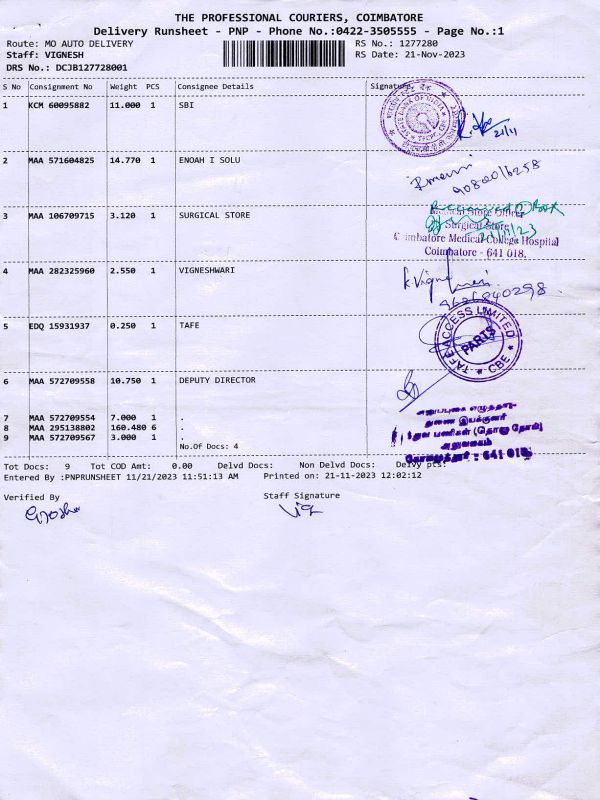 THE PROFESSIONAL COURIERS, COIMBATORE
Delivery Runsheet - PNP - Phone No.:0422-3505555 - Page No.:1
Route: MO AUTO DELIVERY RS No.: 1277280
Staff: VIGNESH RS Date: 21-Nov-2023
DRS No.: DCJB127728001
S No Consignment No Weight PCS Consignee Details Signature
1 KCM 60095882 11.000 1 SBI
STATE BANK OF INDIA
21/11
2 MAA 571604825 14.770 1 ENOAH I SOLU
9080016258
3 MAA 106709715 3.120 1 SURGICAL STORE
Medical Store Officer
Surgical Store
21/11/23
Coimbatore Medical College Hospital
Coimbatore - 641 018.
4 MAA 282325960 2.550 1 VIGNESHWARI
5 EDQ 15931937 0.250 1 TAFE
TAFE ACCESS LIMITED
PARTS
* CBE *
6 MAA 572709558 10.750 1 DEPUTY DIRECTOR
7 MAA 572709554 7.000 1 .
8 MAA 295138802 160.480 6 .
9 MAA 572709567 3.000 1 .
No.Of Docs: 4
துணை இயக்குனர்
அலுவலகம்
641 018
Tot Docs: 9 Tot COD Amt: 0.00 Delvd Docs: Non Delvd Docs: Delvy pts:
Entered By :PNPRUNSHEET 11/21/2023 11:51:13 AM Printed on: 21-11-2023 12:02:12
Verified By Staff Signature